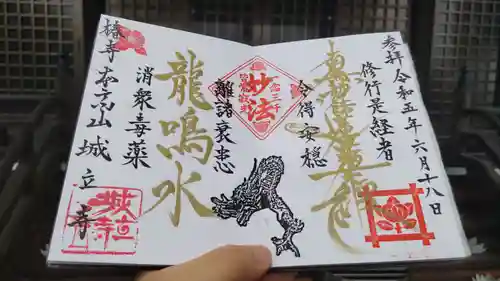 参拝 令和五年六月十八日
修行是経者
令得安穏
妙法
離諸衰患
龍鳴水
消衆毒薬
椿寺 本高山 城立寺
城立寺